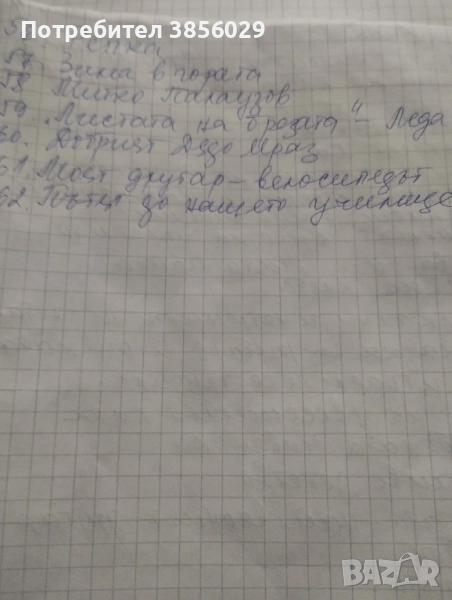 Потребител 3856029
57 Зима в гората
58 Митко Палаузов
59 „Листата на брезата" – Леда
60. Добрият Дядо Мраз
61. Моят другар – велосипедът
62 Пътят до нашето училище
BAZAR